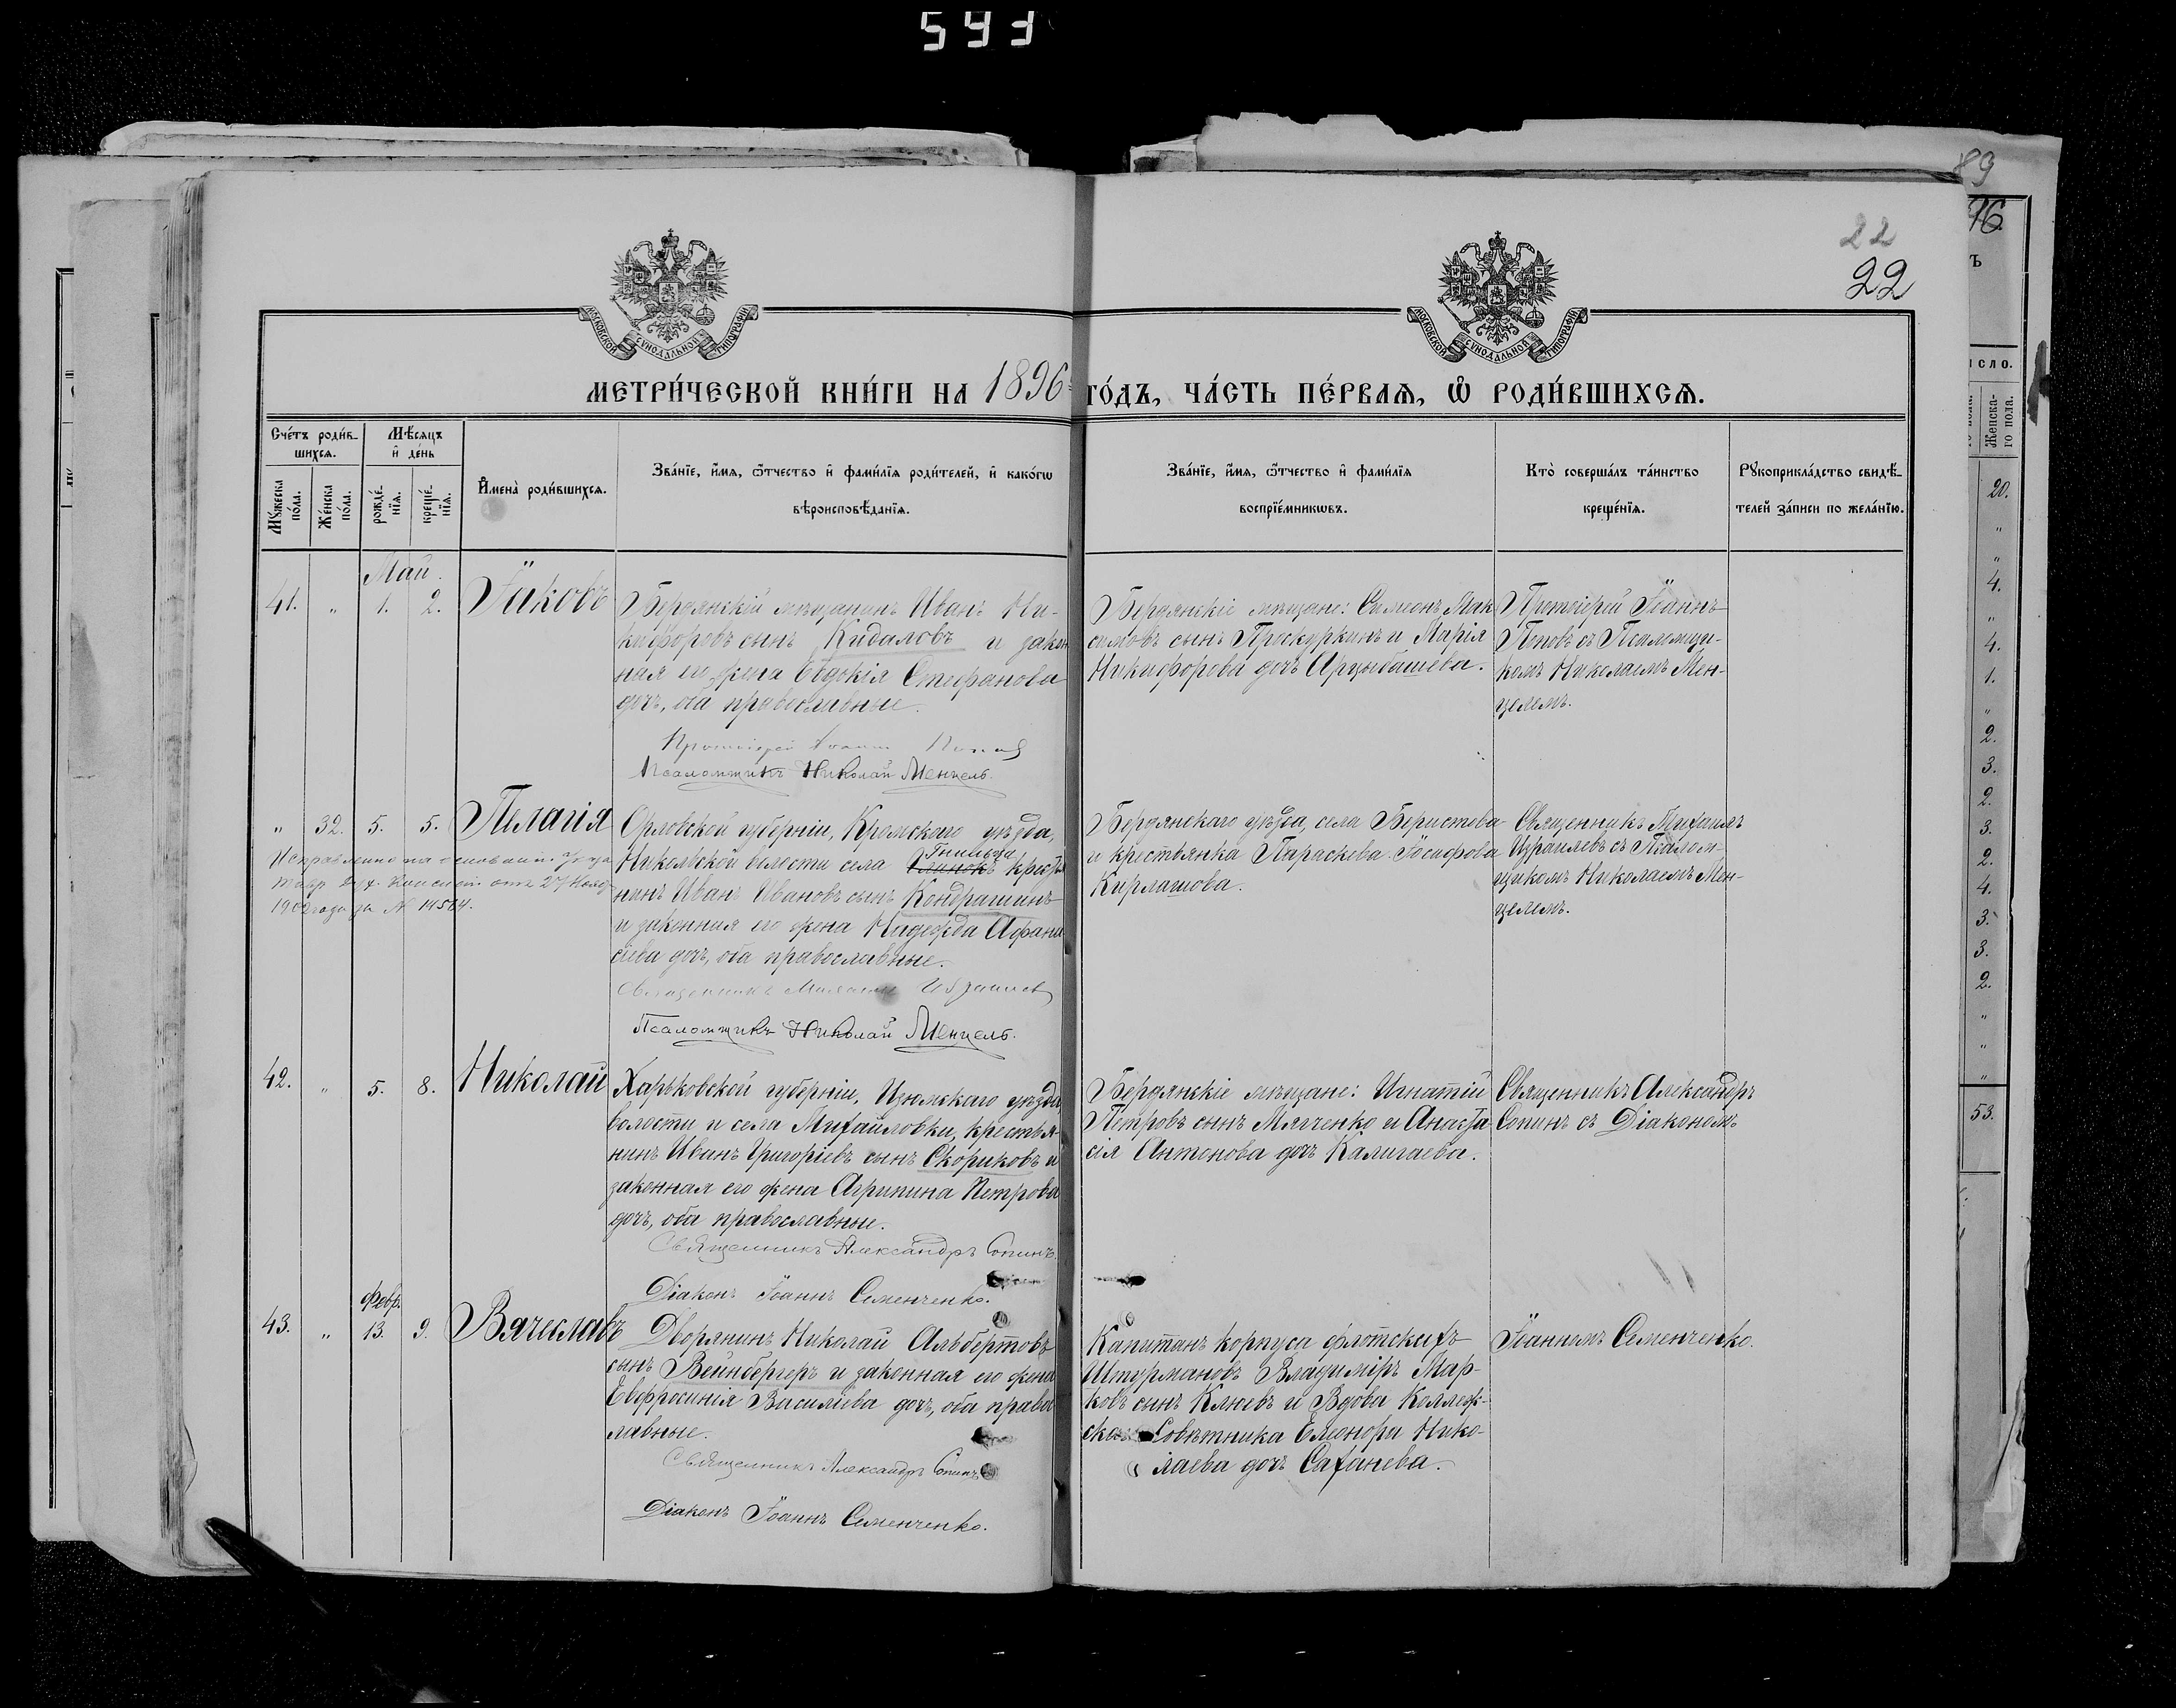 593
89
96
22
22
МОСКОВСКОЙ СѴНОДАЛЬНОЙ ТИПОГРАФІИ
МОСКОВСКОЙ СѴНОДАЛЬНОЙ ТИПОГРАФІИ
МЕТРИ́ЧЕСКОЙ КНИ́ГИ НА 1896 ГО́ДЪ, ЧА́СТЬ ПЕ́РВАѦ, Ѡ҆ РОДИ́ВШИХСѦ.
Сче́тъ роди́в-
шихсѧ.
Мѣ́сѧцъ
и҆ де́нь
Мꙋ́жеска
по́ла.
Же́нска
по́ла.
рожде́-
нїѧ.
креще́-
нїѧ.
И҆мена̀ роди́вшихсѧ.
Зва́нїе, и҆́мѧ, ѻ҆́тчество и҆ фами́лїѧ роди́телей, и҆ како́гѡ
вѣроисповѣ́данїѧ.
Зва́нїе, и҆́мѧ, ѻ҆́тчество и҆ фами́лїѧ
воспрїе́мникѡвъ.
Кто̀ соверша́лъ та́инство
креще́нїѧ.
Рꙋкоприкла́дство свидѣ́-
телей за́писи по жела́нїю.
Май.
41. " 1. 2. Іаковъ
Бердянскій мѣщанинъ Иванъ Ни-
кифоровъ сынъ Кидаловъ и закон
ная его жена Евдокія Стефанова
дочь, оба православные.
Протоіерей Іоаннъ Поповъ
Псаломщикъ Николай Менцель.
Бердянскіе мѣщане: Симеонъ Мак
симовъ сынъ Проскуркинъ и Марія
Никифорова дочь Арцыбашева.
Протоіерей Іоаннъ
Поповъ съ Псаломщи-
комъ Николаемъ Мен-
целемъ.
" 32. 5. 5. Пелагія
Исправлено на основаніи Указа
Тавр. Дух. Консист. отъ 27 Нояб
1902 года за № 14564.
Орловской губерніи, Кромскаго уѣзда,
Никольской волости села Гнильца крестья
нинъ Иванъ Ивановъ сынъ Кондрашинъ
и законная его жена Надежда Афана
сіева дочь, оба православные.
Священникъ Михаилъ Израилевъ
Псаломщикъ Николай Менцель.
Бердянскаго уѣзда, села Берестова
и крестьянка Параскева Іосифова
Кирлашова.
Священникъ Михаилъ
Израилевъ съ Псалом-
щикомъ Николаемъ Мен-
целемъ.
42. " 5. 8. Николай
Харьковской губерніи, Изюмскаго уѣзда
волости и села Михайловки, крестья-
нинъ Иванъ Григоріевъ сынъ Скориковъ и
законная его жена Агрипина Петрова
дочь, оба православные.
Священникъ Александръ Сопинъ.
Діаконъ Іоаннъ Семенченко.
Бердянскіе мѣщане: Игнатій
Петровъ сынъ Мягченко и Анаста
сія Антонова дочь Калигаева.
Священникъ Александръ
Сопинъ съ Діакономъ
Февр.
43. " 13. 9. Вячеславъ
Дворянинъ Николай Альбертовъ
сынъ Вейнбергеръ и законная его жена
Евфросинія Василіева дочь, оба право
лавные.
Священникъ Александръ Сопинъ
Діаконъ Іоаннъ Семенченко.
Капитанъ корпуса флотскихъ
Штурмановъ Владиміръ Мар-
ковъ сынъ Клюевъ и Вдова Коллеж-
ска Совѣтника Елеонора Нико-
лаева дочь Саханева.
Іоанномъ Семенченко.
исло.
Женска-
го пола.
20.
"
"
4.
"
4.
1.
"
2.
3.
2.
3.
2.
4.
3.
3.
2.
"
"
"
53.